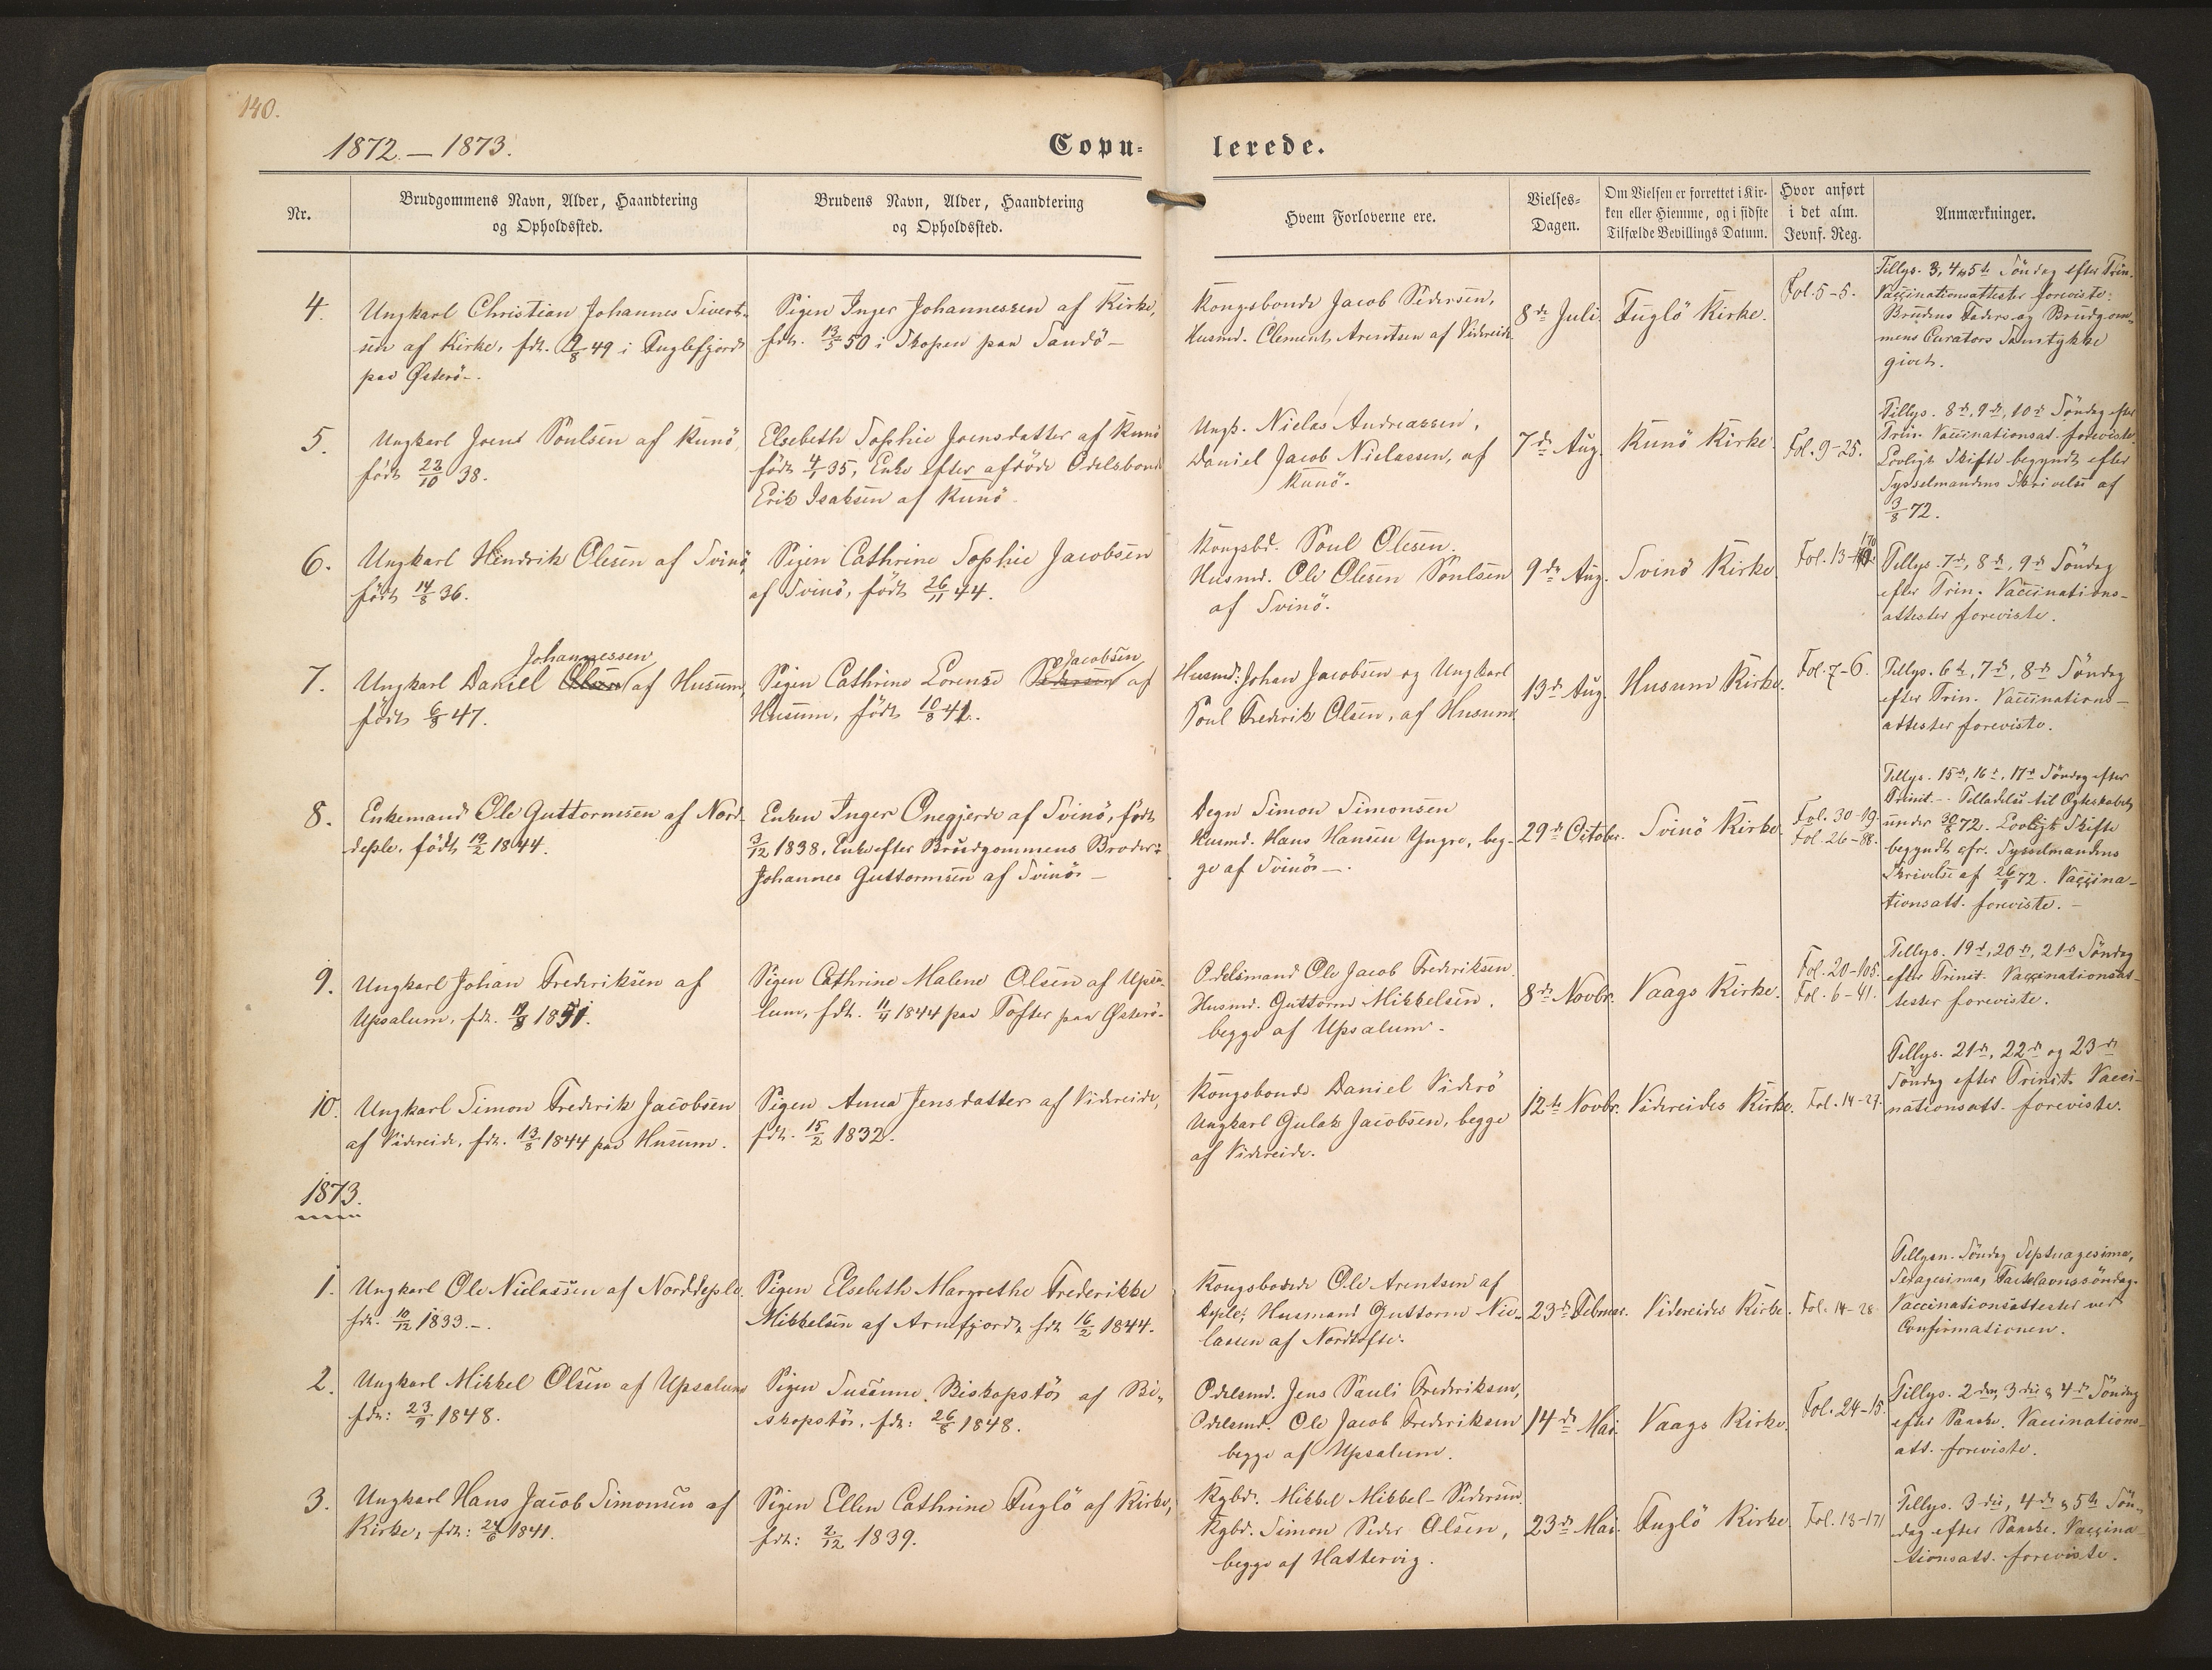 140.
1872. — 1873.
Copu-
lerede.
Nr.
Brudgommens Navn, Alder, Haandtering
og Opholdssted.
Brudens Navn, Alder, Haandtering
og Opholdssted.
Hvem Forloverne ere.
Vielses-
Dagen.
Om Vielsen er forrettet i Kir-
ken eller Hiemme, og i sidste
Tilfælde Bevillings Datum.
Hvor anført
i det alm.
Jevnf. Reg.
Anmærkninger.
4.
Ungkarl Christian Johannes Siverts-
sen af Kirke, fdt. 9/8 49 i Fuglefjord
paa Østerö.
Pigen Inger Johannessen af Kirke,
fdt. 13/5 50 i Skopen paa Sandö —
Kongsbonde Jacob Pedersen,
Husmd. Clement Arentsen af Videreide
8de Juli.
Fuglö Kirke.
Fol. 5-5.
Tillys. 3, 4 & 5te Söndag efter Trin.
Vaccinationsattester foreviste.
Brudens Faders og Brudgom-
mens Curators Samtykke
givet.
5.
Ungkarl Joens Poulsen af Kunö,
født 22/10 38.
Elsebeth Sophie Joensdatter af Kunö
født 4/1 35, Enke efter afdöde Odelsbonde
Erik Isaksen af Kunö.
Ungk. Nielas Andreassen,
Daniel Jacob Nielassen, af
Kunö.
7de Aug.
Kunö Kirke
Fol. 9-25.
Tillys. 8de, 9de, 10de Söndag efter
Trin. Vaccinationsat. foreviste.
Lovligt Skifte begyndt efter
Sysselmandens Skrivelse af
3/8 72.
6.
Ungkarl Hendrik Olesen af Svinö,
født 14/8 36.
Pigen Cathrine Sophie Jacobsen
af Svinö, født 26/11 44.
Kongsbd. Poul Olesen.
Husmd. Ole Olesen Poulsen
af Svinö.
9de Aug.
Svinö Kirke
Fol. 13-170
Tillys. 7de, 8de, 9de Söndag
efter Trin. Vaccinations-
attester foreviste.
7.
Johannessen
Ungkarl Daniel Olsen af Husum,
født 6/8 47.
Jacobsen
Pigen Cathrine Lorense Pedersen af
Husum, født 10/8 41.
Husmd: Johan Jacobsen og Ungkarl
Poul Frederik Olsen, af Husum.
13de Aug.
Husum Kirke.
Fol. 7-6.
Tillys. 6te, 7de, 8de Söndag
efter Trin. Vaccinations-
attester foreviste.
8.
Enkemand Ole Guttormsen af Nord-
deple, født 19/2 1844.
Enken Inger Onegjerde af Svinö, født
3/12 1838, Enke efter Brudgommens Broder:
Johannes Guttormsen af Svinö —
Degn Simon Simonsen
Husmd. Hans Hansen Yngre, beg-
ge af Svinö —.
29de October.
Svinö Kirke
Fol. 30-19.
Fol. 26-88.
Tillys. 15de, 16de, 17de Söndag efter
Trinit. Tilladelse til Ægteskabet
under 30/8 72. Lovligt Skifte
begyndt cfr. Sysselmandens
Skrivelse af 26/9 72. Vaccina-
tionsatt. foreviste. —
9.
Ungkarl Johan Frederiksen af
Upsalum, fdt. 1851.
Pigen Cathrine Malene Olsen af Upsa-
lum, fdt. 11/4 1844 paa Tofter paa Østerö.
Odelsmand Ole Jacob Frederiksen.
Husmd. Guttorm Mikkelsen.
begge af Upsalum.
8de Novbr.
Vaags Kirke.
Fol. 20-105.
Fol. 6-41.
Tillys. 19de, 20de, 21de Söndag
efter Trinit. Vaccinationsat-
tester foreviste.
10.
Ungkarl Simon Frederik Jacobsen
af Videreide, fdt. 13/8 1844 paa Husum.
Pigen Anna Jensdatter af Videreide,
fdt. 15/2 1832.
Kongsbonde Daniel Viderö
Ungkarl Gulak Jacobsen, begge
af Videreide.
12te Novbr.
Videreides Kirke.
Fol. 14-27.
Tillys. 21de, 22de og 23de
Söndag efter Trinit. Vacci-
nationsatt. foreviste.
1873.
1.
Ungkarl Ole Nielassen af Norddeple.
fdt. 10/12 1833.—.
Pigen Elsebeth Margrethe Frederikke
Mikkelsen af Arnefjord, fdt 16/2 1844.
Kongsbonde Ole Arentsen af
Deple; Husmand Guttorm Nie-
lassen af Nordtofte.
23de Februar.
Videreides Kirke.
Fol. 14-28
Tillysn. Söndag Septuagesima,
Sexagesima, Fastelavnssöndag.
Vaccinationsattester ved
Confirmationen.
2.
Ungkarl Mikkel Olsen af Upsalum
fdt: 23/9 1848.
Pigen Susanne Biskopstö af Bi-
skopstö, fdt: 26/8 1848.
Odelsmd. Jens Pauli Frederiksen,
Odelsmd. Ole Jacob Frederiksen
begge af Upsalum.
14de Mai.
Vaags Kirke.
Fol. 24-15.
Tillys. 2den, 3die & 4de Söndag
efter Paaske. Vaccinations-
att. foreviste.
3.
Ungkarl Hans Jacob Simonsen af
Kirke, fdt: 24/6 1841.
Pigen Ellen Cathrine Fuglö af Kirke,
fdt: 2/12 1839.
Kgbd. Mikkel Mikkel-Pedersen.
Kgbd. Simon Peder Olsen,
begge af Hattervig.
23de Mai.
Fuglö Kirke
Fol. 13-171
Tillys. 3die, 4de & 5te Sön-
dag efter Paaske. Vaccina-
tionsatt. foreviste.